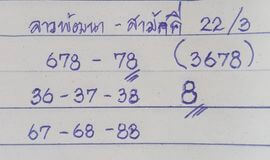 ลาวพัฒนา - สามัคคี 22/3
678 - 78 (3678)
36 - 37 - 38 8
67 - 68 - 88